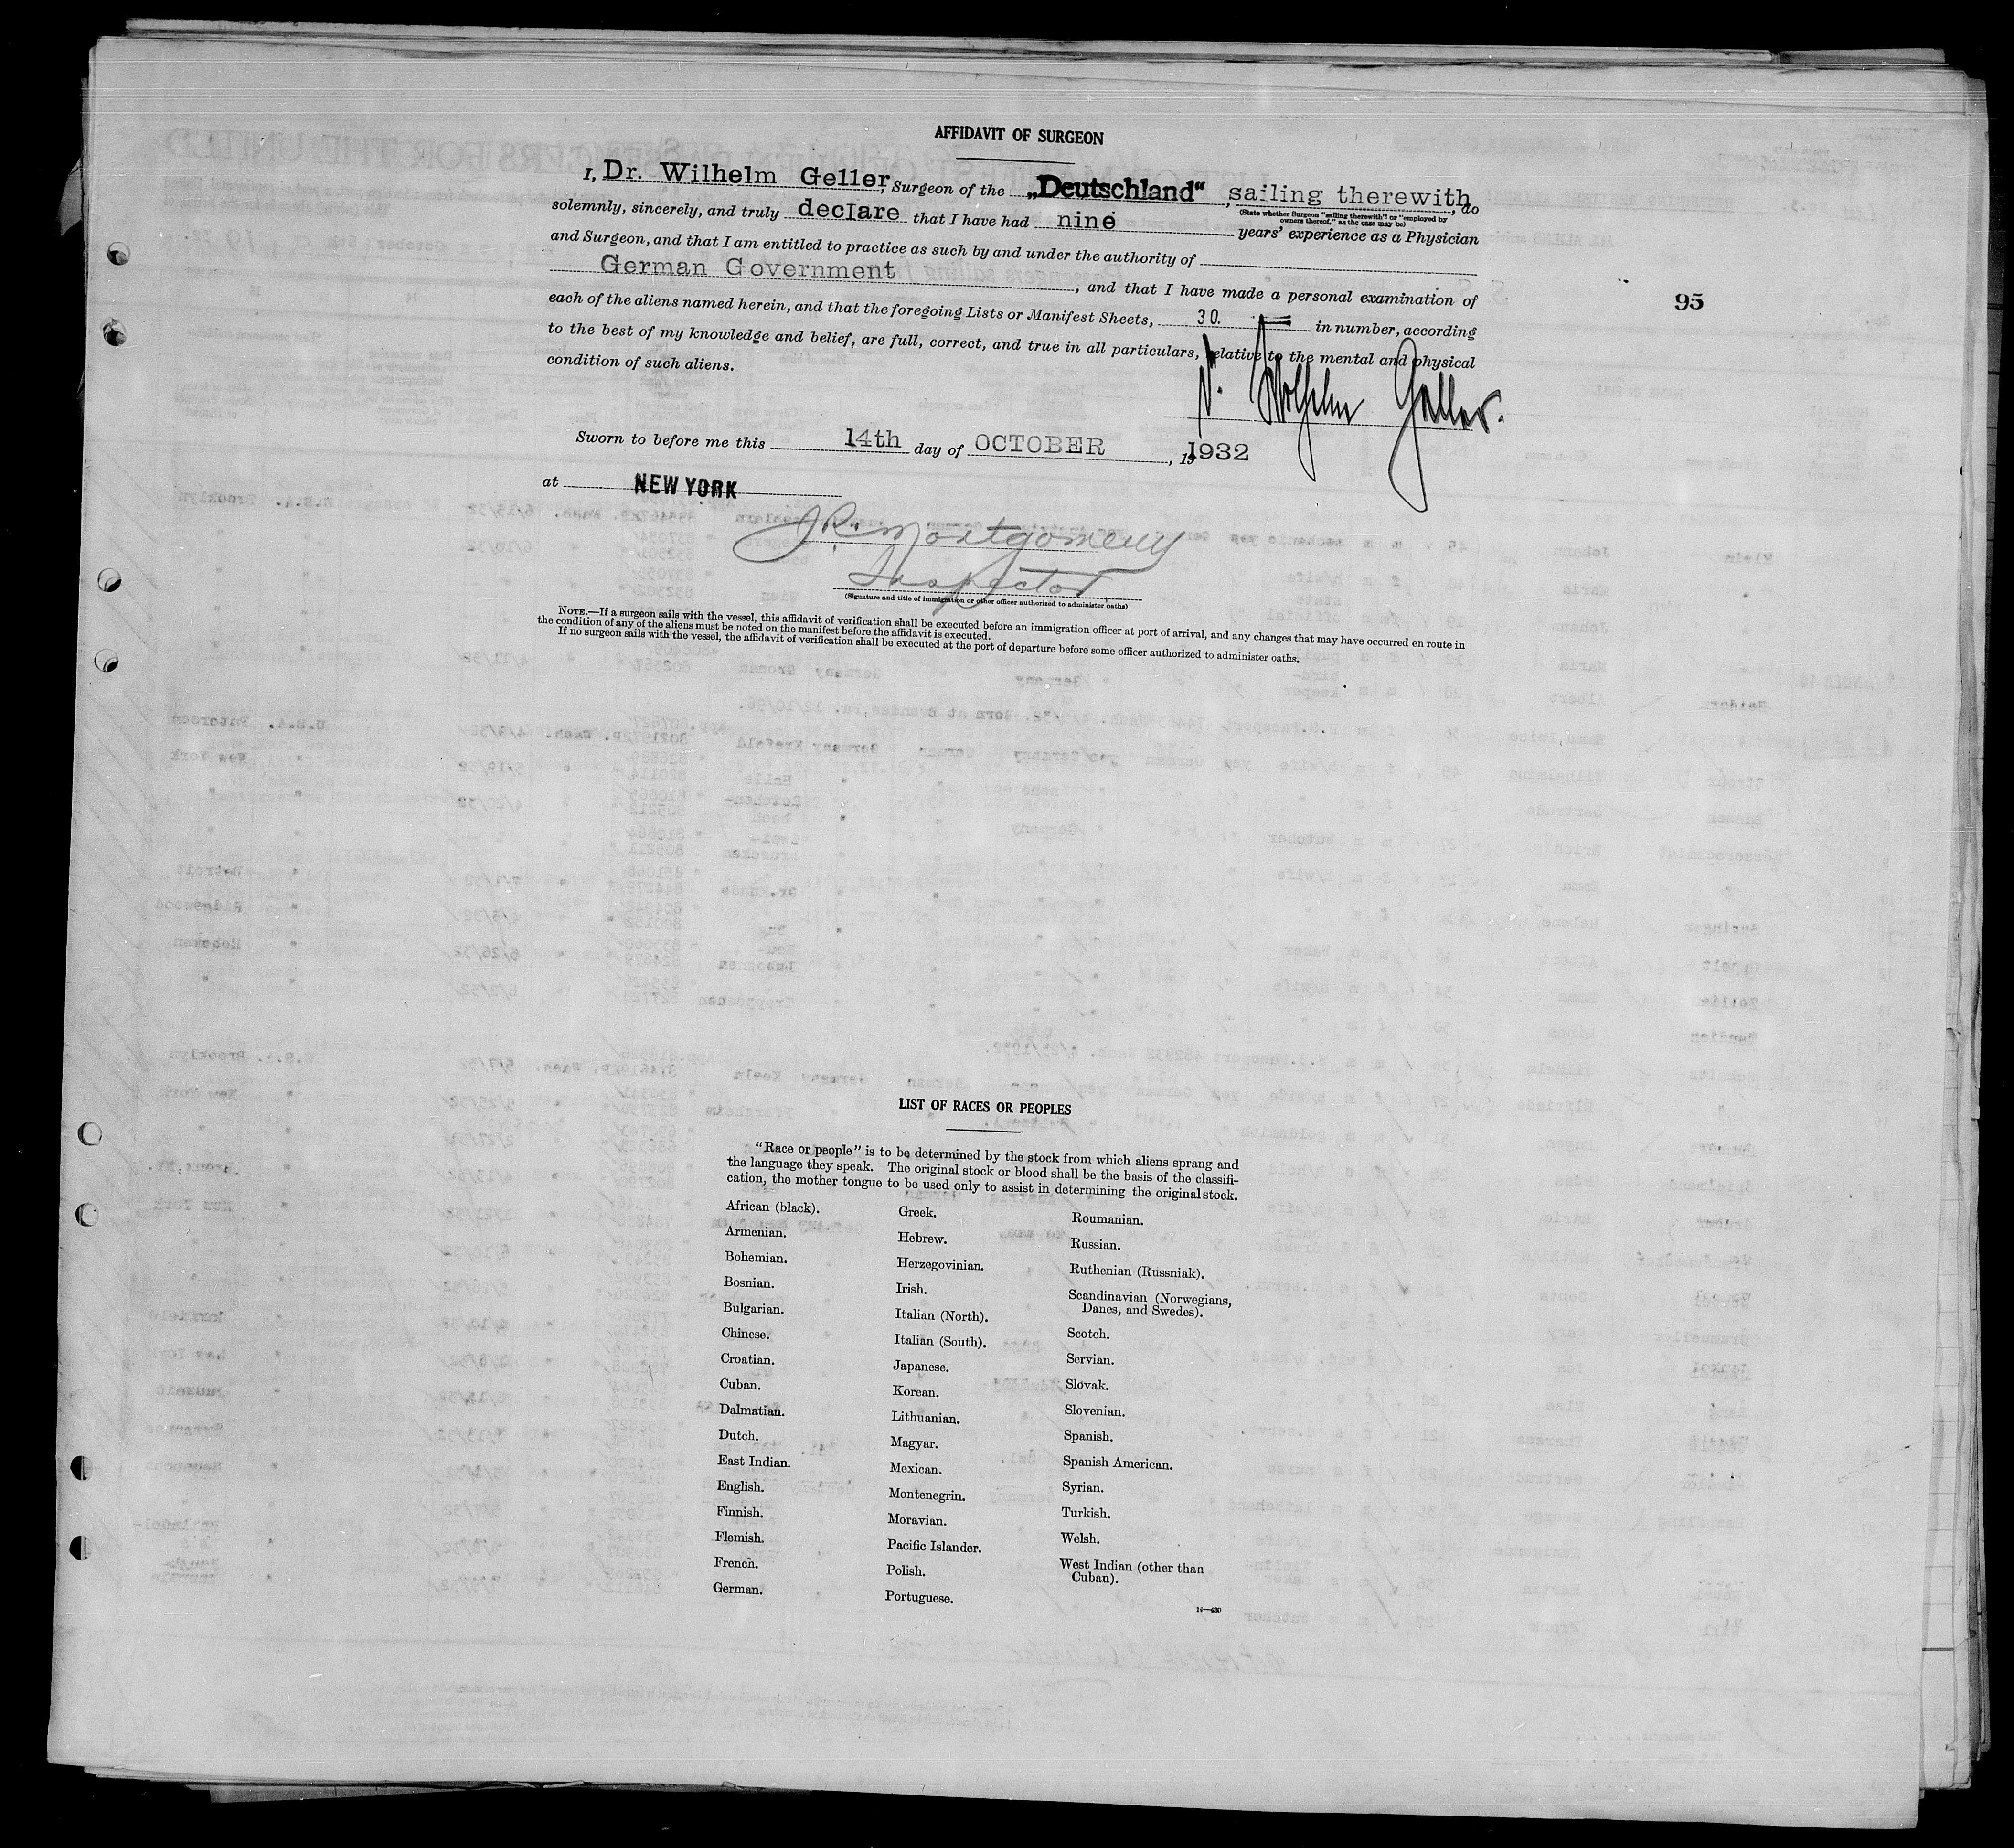 AFFIDAVIT OF SURGEON
I, Dr. Wilhelm Geller, Surgeon of the „Deutschland“, sailing therewith, do
(State whether Surgeon "sailing therewith" or "employed by owners thereof," as the case may be)
solemnly, sincerely, and truly declare that I have had nine years' experience as a Physician
and Surgeon, and that I am entitled to practice as such by and under the authority of
German Government, and that I have made a personal examination of
each of the aliens named herein, and that the foregoing Lists or Manifest Sheets, 30. in number, according
to the best of my knowledge and belief, are full, correct, and true in all particulars, relative to the mental and physical
condition of such aliens.
95
Wilhelm Geller.
Sworn to before me this 14th day of OCTOBER, 19 1932
at NEW YORK
J R Montgomery
Inspector
(Signature and title of immigration or other officer authorized to administer oaths)
NOTE.—If a surgeon sails with the vessel, this affidavit of verification shall be executed before an immigration officer at port of arrival, and any changes that may have occurred en route in
the condition of any of the aliens must be noted on the manifest before the affidavit is executed.
If no surgeon sails with the vessel, the affidavit of verification shall be executed at the port of departure before some officer authorized to administer oaths.
LIST OF RACES OR PEOPLES
"Race or people" is to be determined by the stock from which aliens sprang and
the language they speak. The original stock or blood shall be the basis of the classifi-
cation, the mother tongue to be used only to assist in determining the original stock.
African (black).
Armenian.
Bohemian.
Bosnian.
Bulgarian.
Chinese.
Croatian.
Cuban.
Dalmatian.
Dutch.
East Indian.
English.
Finnish.
Flemish.
French.
German.
Greek.
Hebrew.
Herzegovinian.
Irish.
Italian (North).
Italian (South).
Japanese.
Korean.
Lithuanian.
Magyar.
Mexican.
Montenegrin.
Moravian.
Pacific Islander.
Polish.
Portuguese.
Roumanian.
Russian.
Ruthenian (Russniak).
Scandinavian (Norwegians,
Danes, and Swedes).
Scotch.
Servian.
Slovak.
Slovenian.
Spanish.
Spanish American.
Syrian.
Turkish.
Welsh.
West Indian (other than
Cuban).
14—430